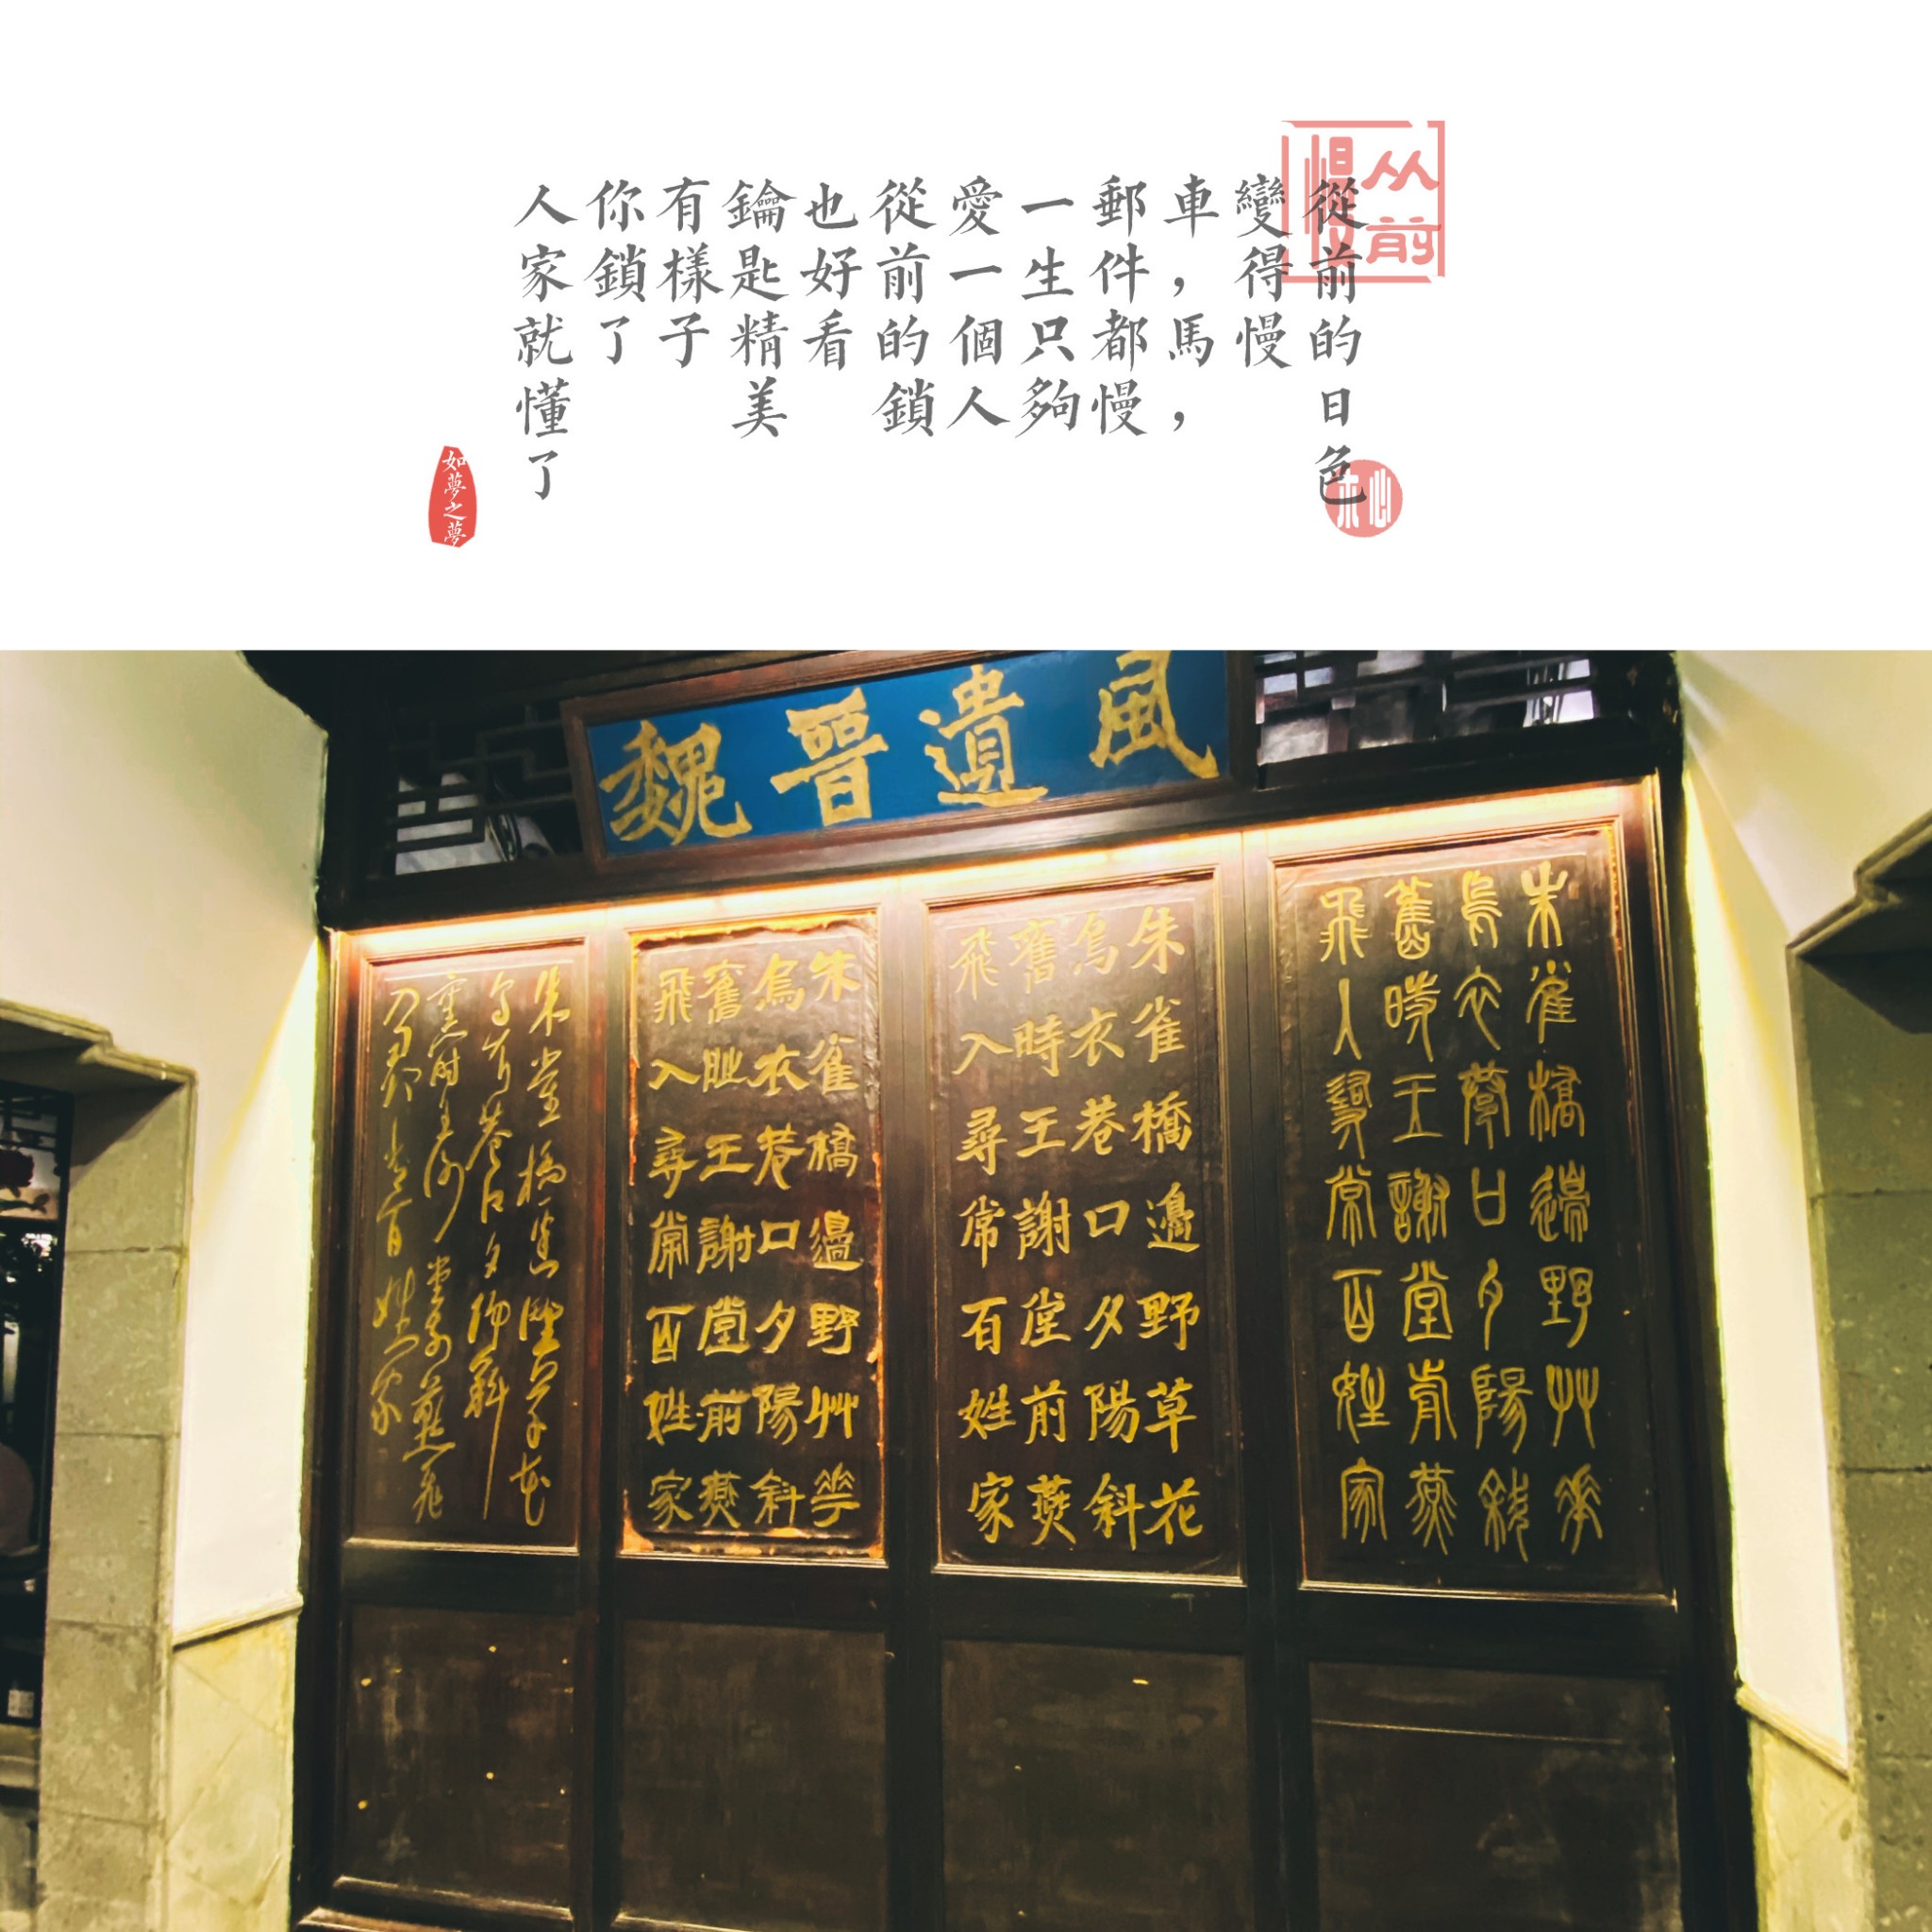 從前的日色
變得慢
車，馬，
郵件都慢
一生只夠
愛一個人
從前的鎖
也好看
鑰匙精美
有樣子
你鎖了
人家就懂了
从前慢
木心
如夢之夢
魏晉遺風
朱雀橋邊野艸花
烏衣巷口夕陽斜
舊時王謝堂前燕
飛入尋常百姓家
朱雀橋邊野草花
烏衣巷口夕陽斜
舊時王謝堂前燕
飛入尋常百姓家
朱雀橋邊野艸花
烏衣巷口夕陽斜
舊時王謝堂前燕
飛入尋常百姓家
朱雀橋邊野草花
烏衣巷口夕陽斜
舊時王謝堂前燕飛
入尋常百姓家